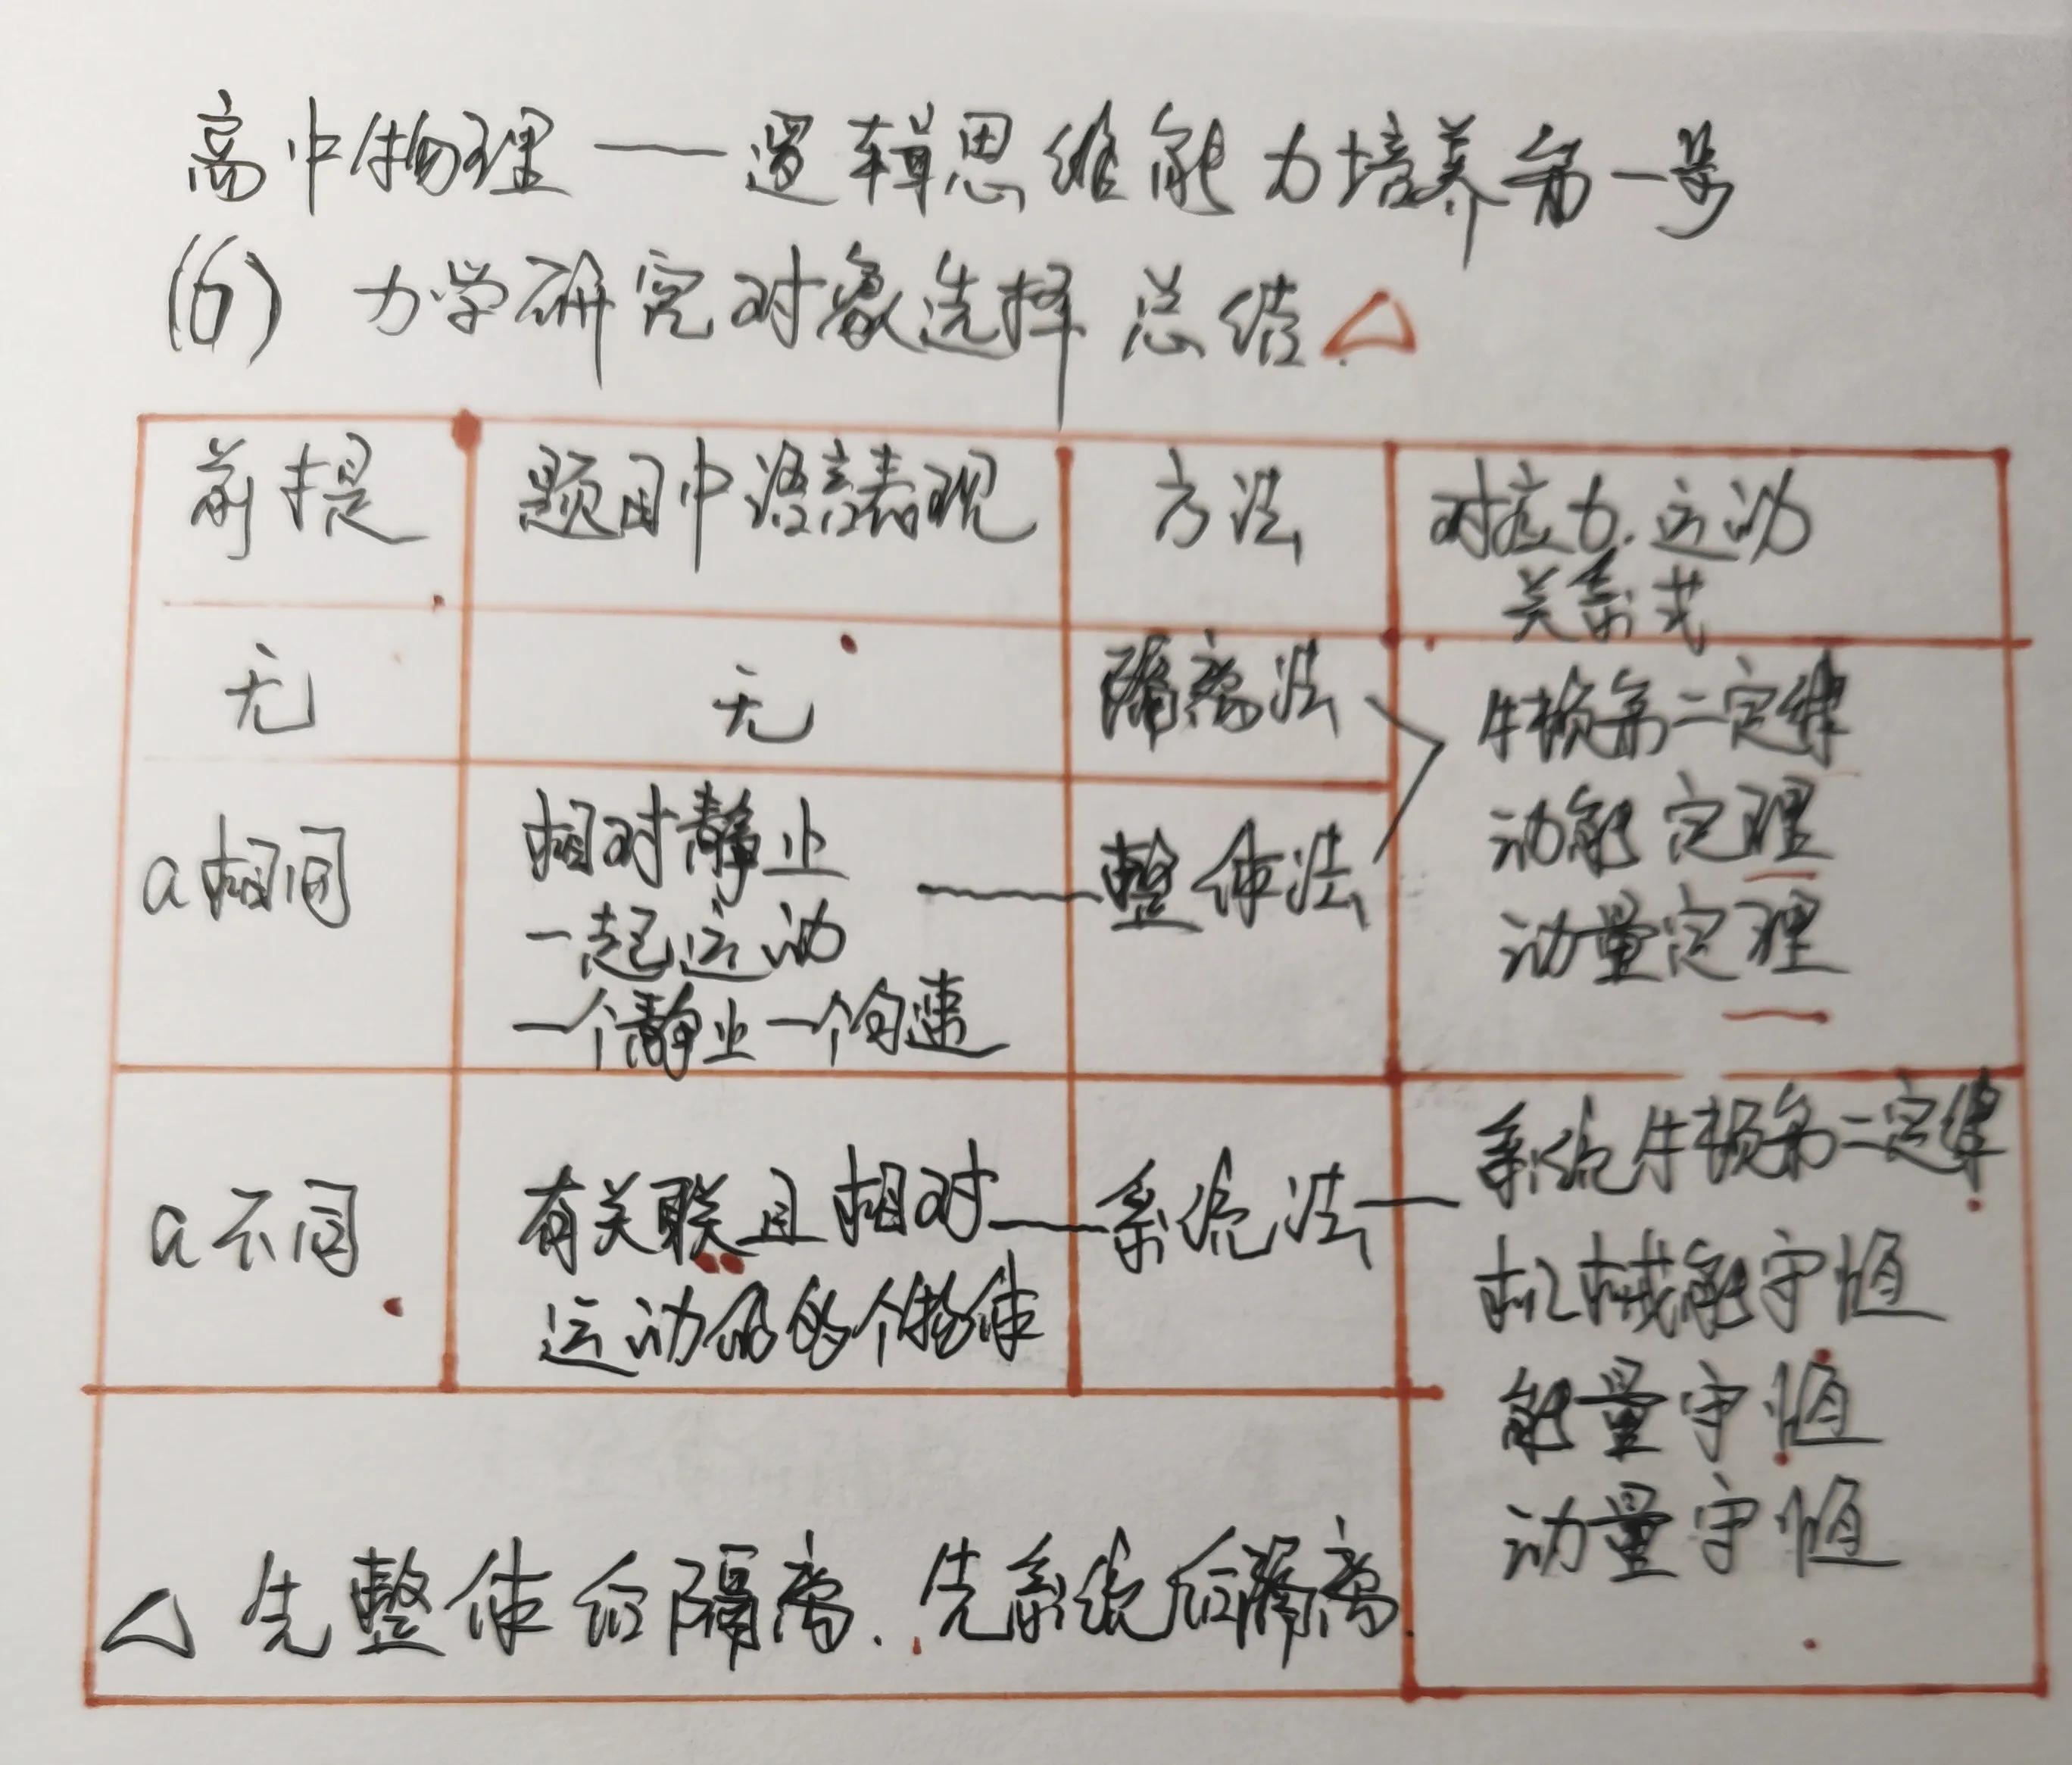 高中物理——逻辑思维能力培养第一步
(6) 力学研究对象选择 总结△
前提 题目中语言表现 方法 对应力.运动
关系式
无 无 隔离法
牛顿第二定律
动能定理
动量定理
a相同
相对静止
一起运动
一个静止一个匀速
整体法
a不同
有关联且相对
运动的多个物体
系统法
系统牛顿第二定律
机械能守恒
能量守恒
动量守恒
△ 先整体后隔离.先系统后隔离.